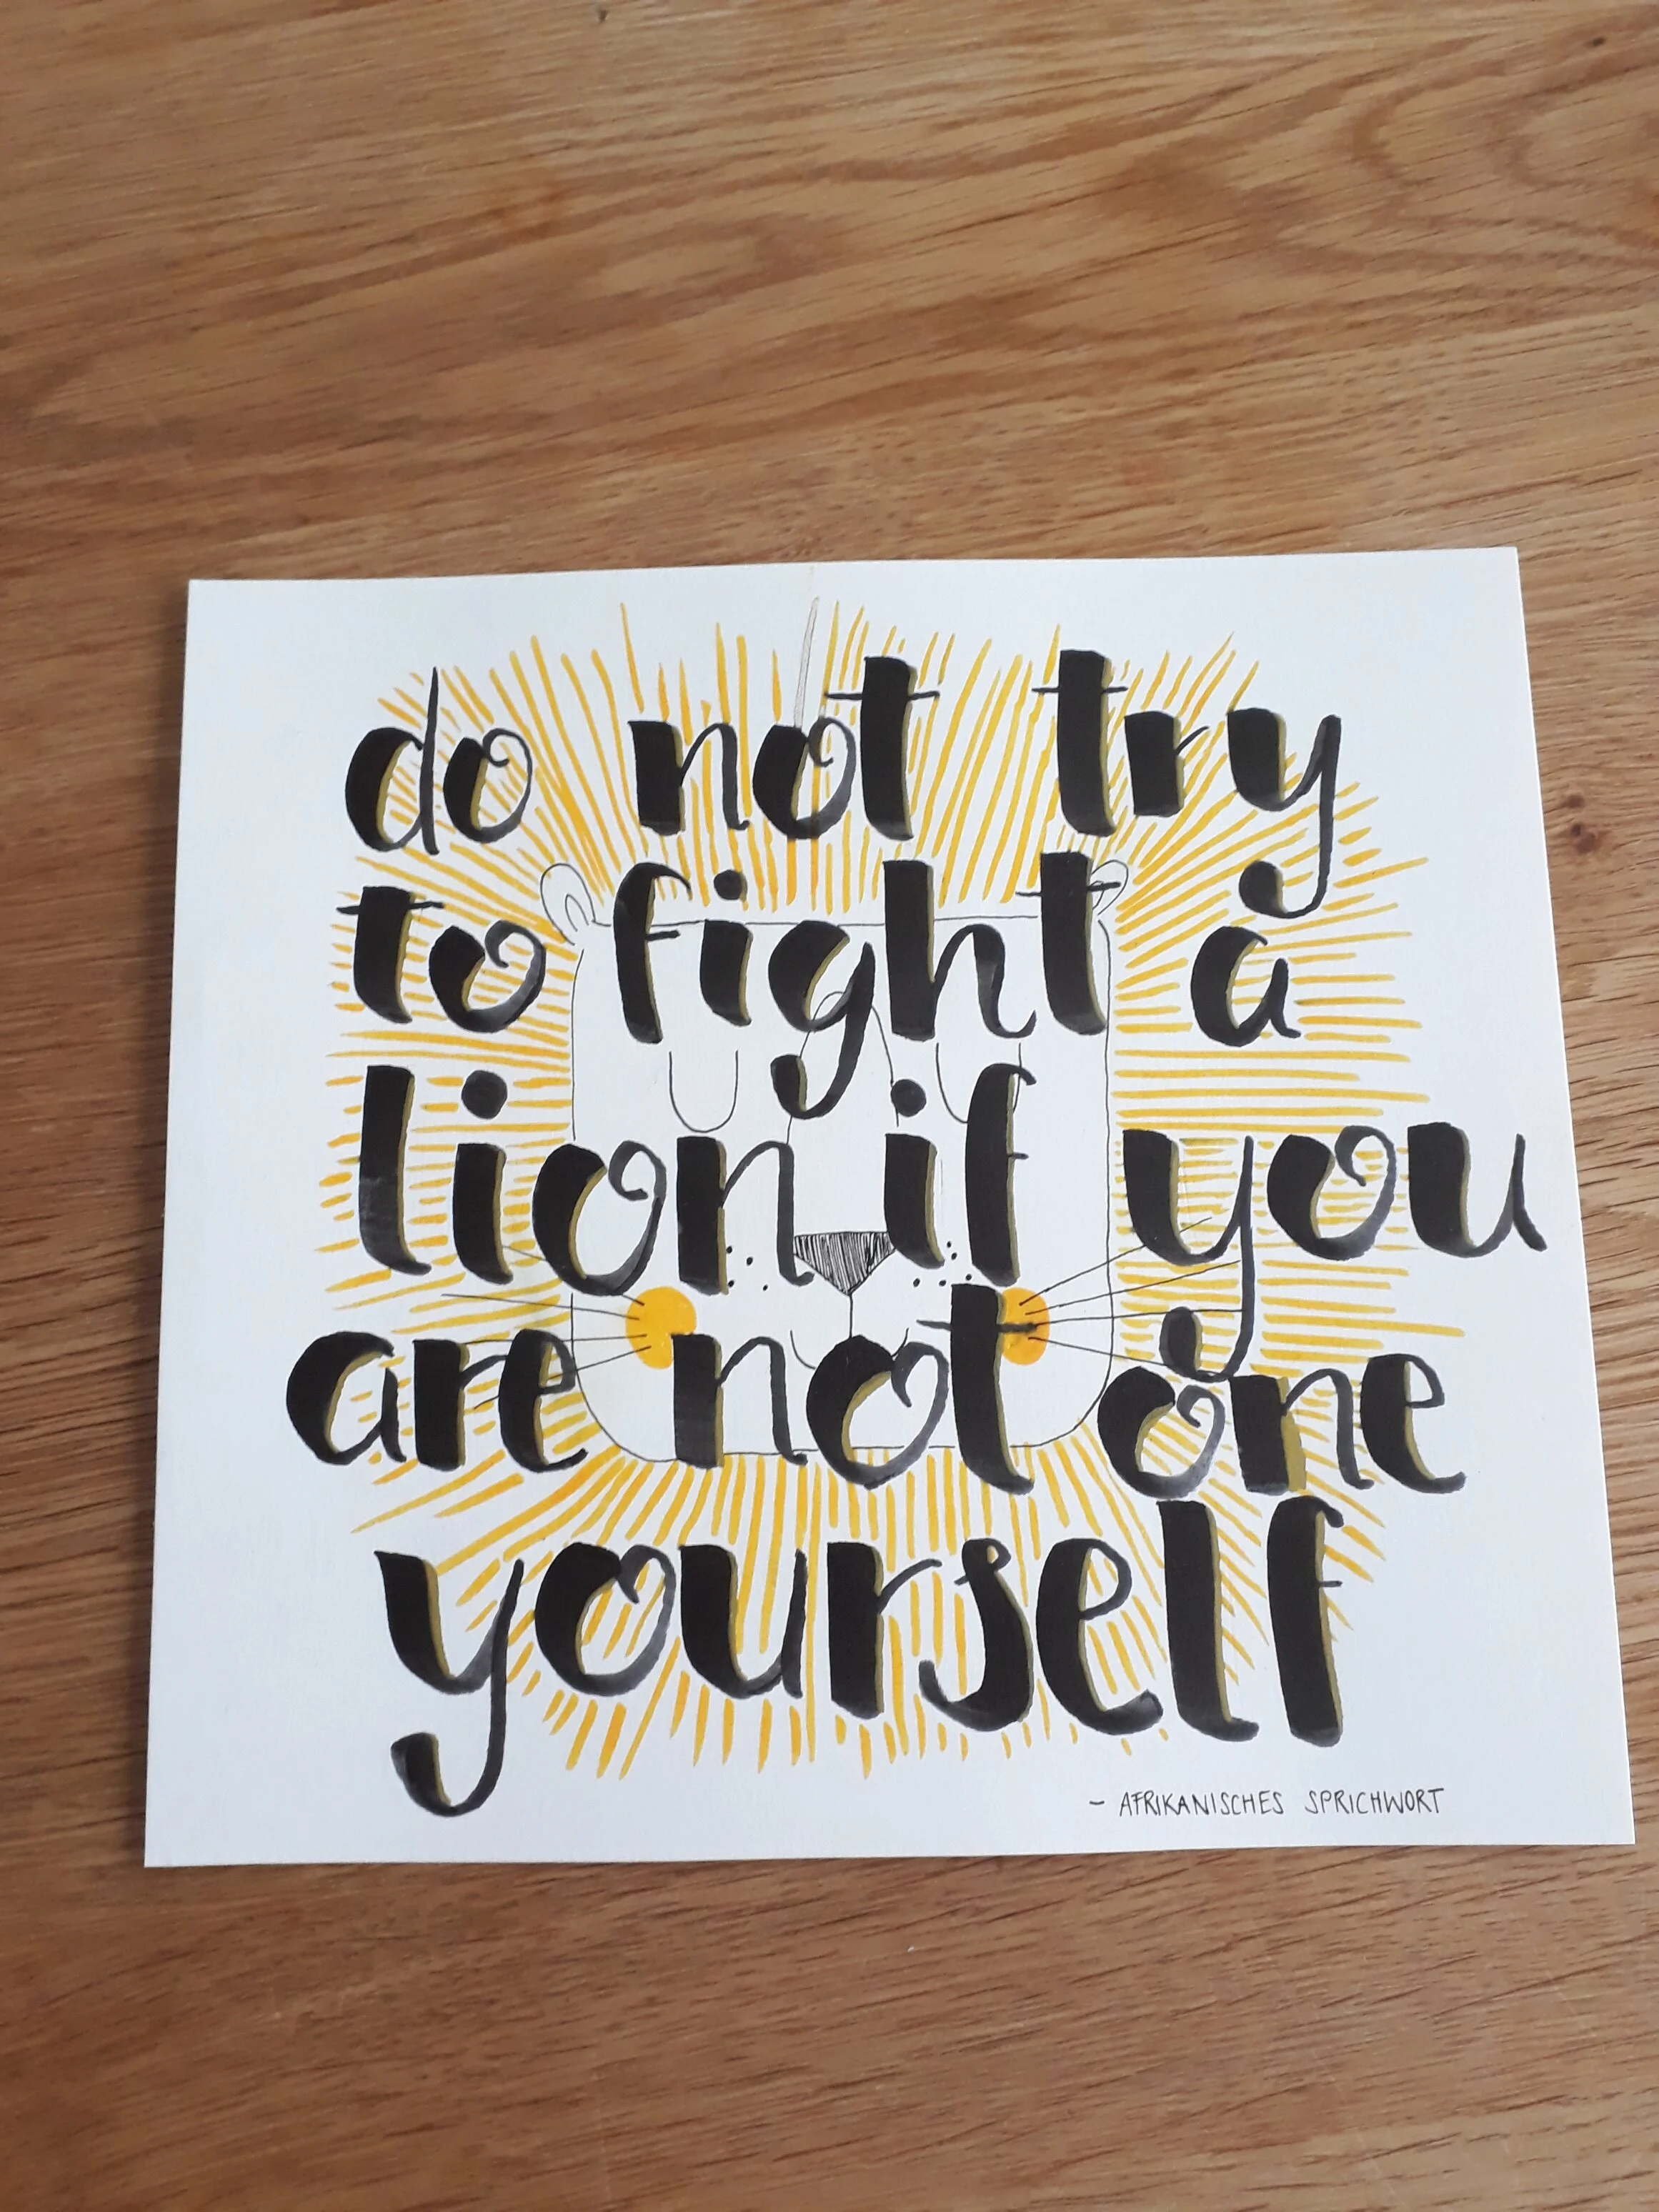 do not try
to fight a
lion if you
are not one
yourself
- AFRIKANISCHES SPRICHWORT